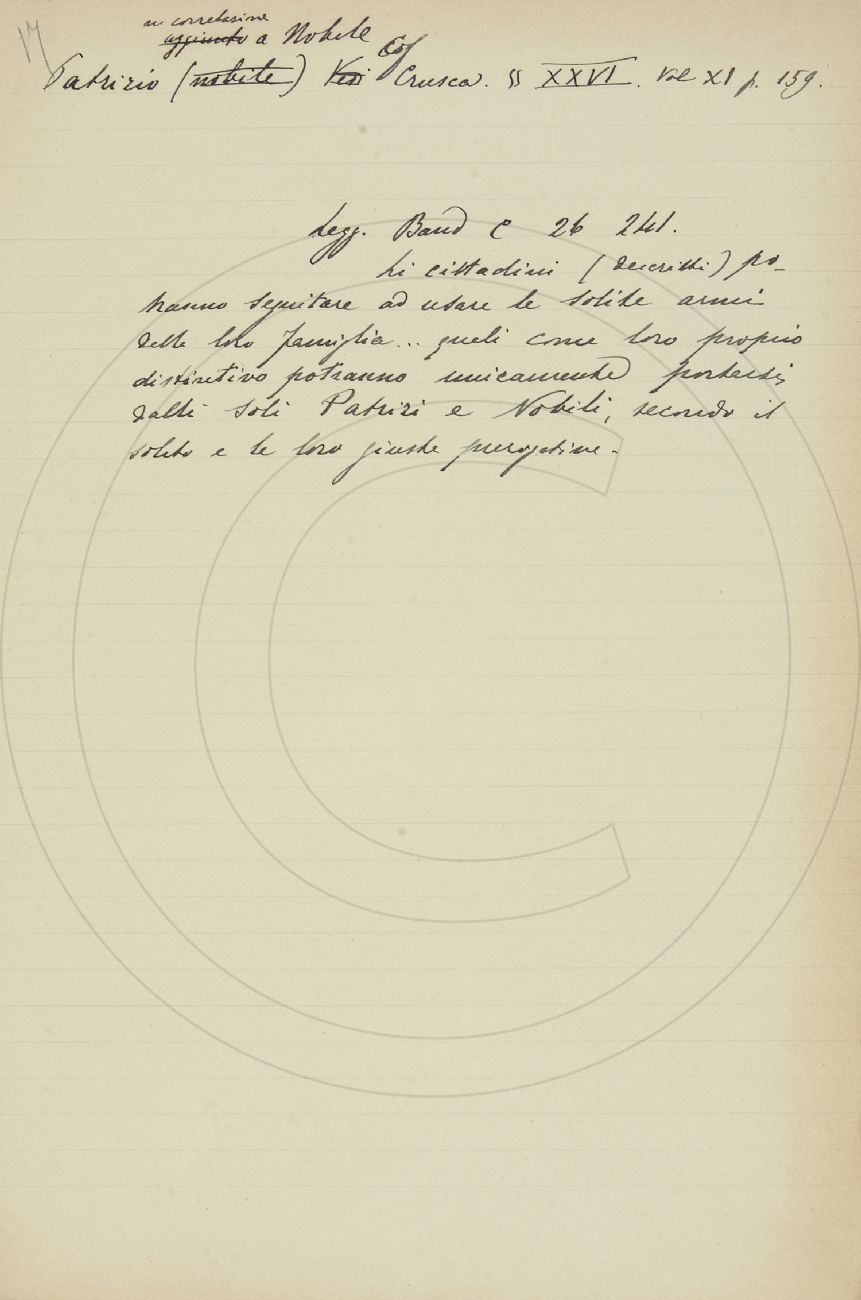 in correlazione
aggiunto a Nobile
Patrizio (nobile) Vedi Crusca. §§ XXVI. Vol XI p. 159.
Legg. Band C 26 241.
Li cittadini (descritti) po-
tranno seguitare ad usare le solite armi
delle loro famiglia... quali come loro proprio
distintivo potranno unicamente portarsi
dalli soli Patrizi e Nobili, secondo il
solito e le loro giuste prerogative.